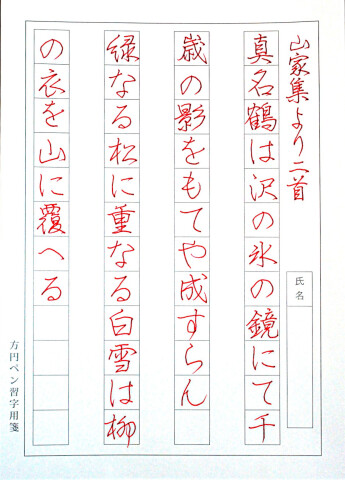 山家集より二首
真名鶴は沢の氷の鏡にて千
歳の影をもてや成すらん
緑なる松に重なる白雪は柳
の衣を山に覆へる
氏名
方円ペン習字用箋